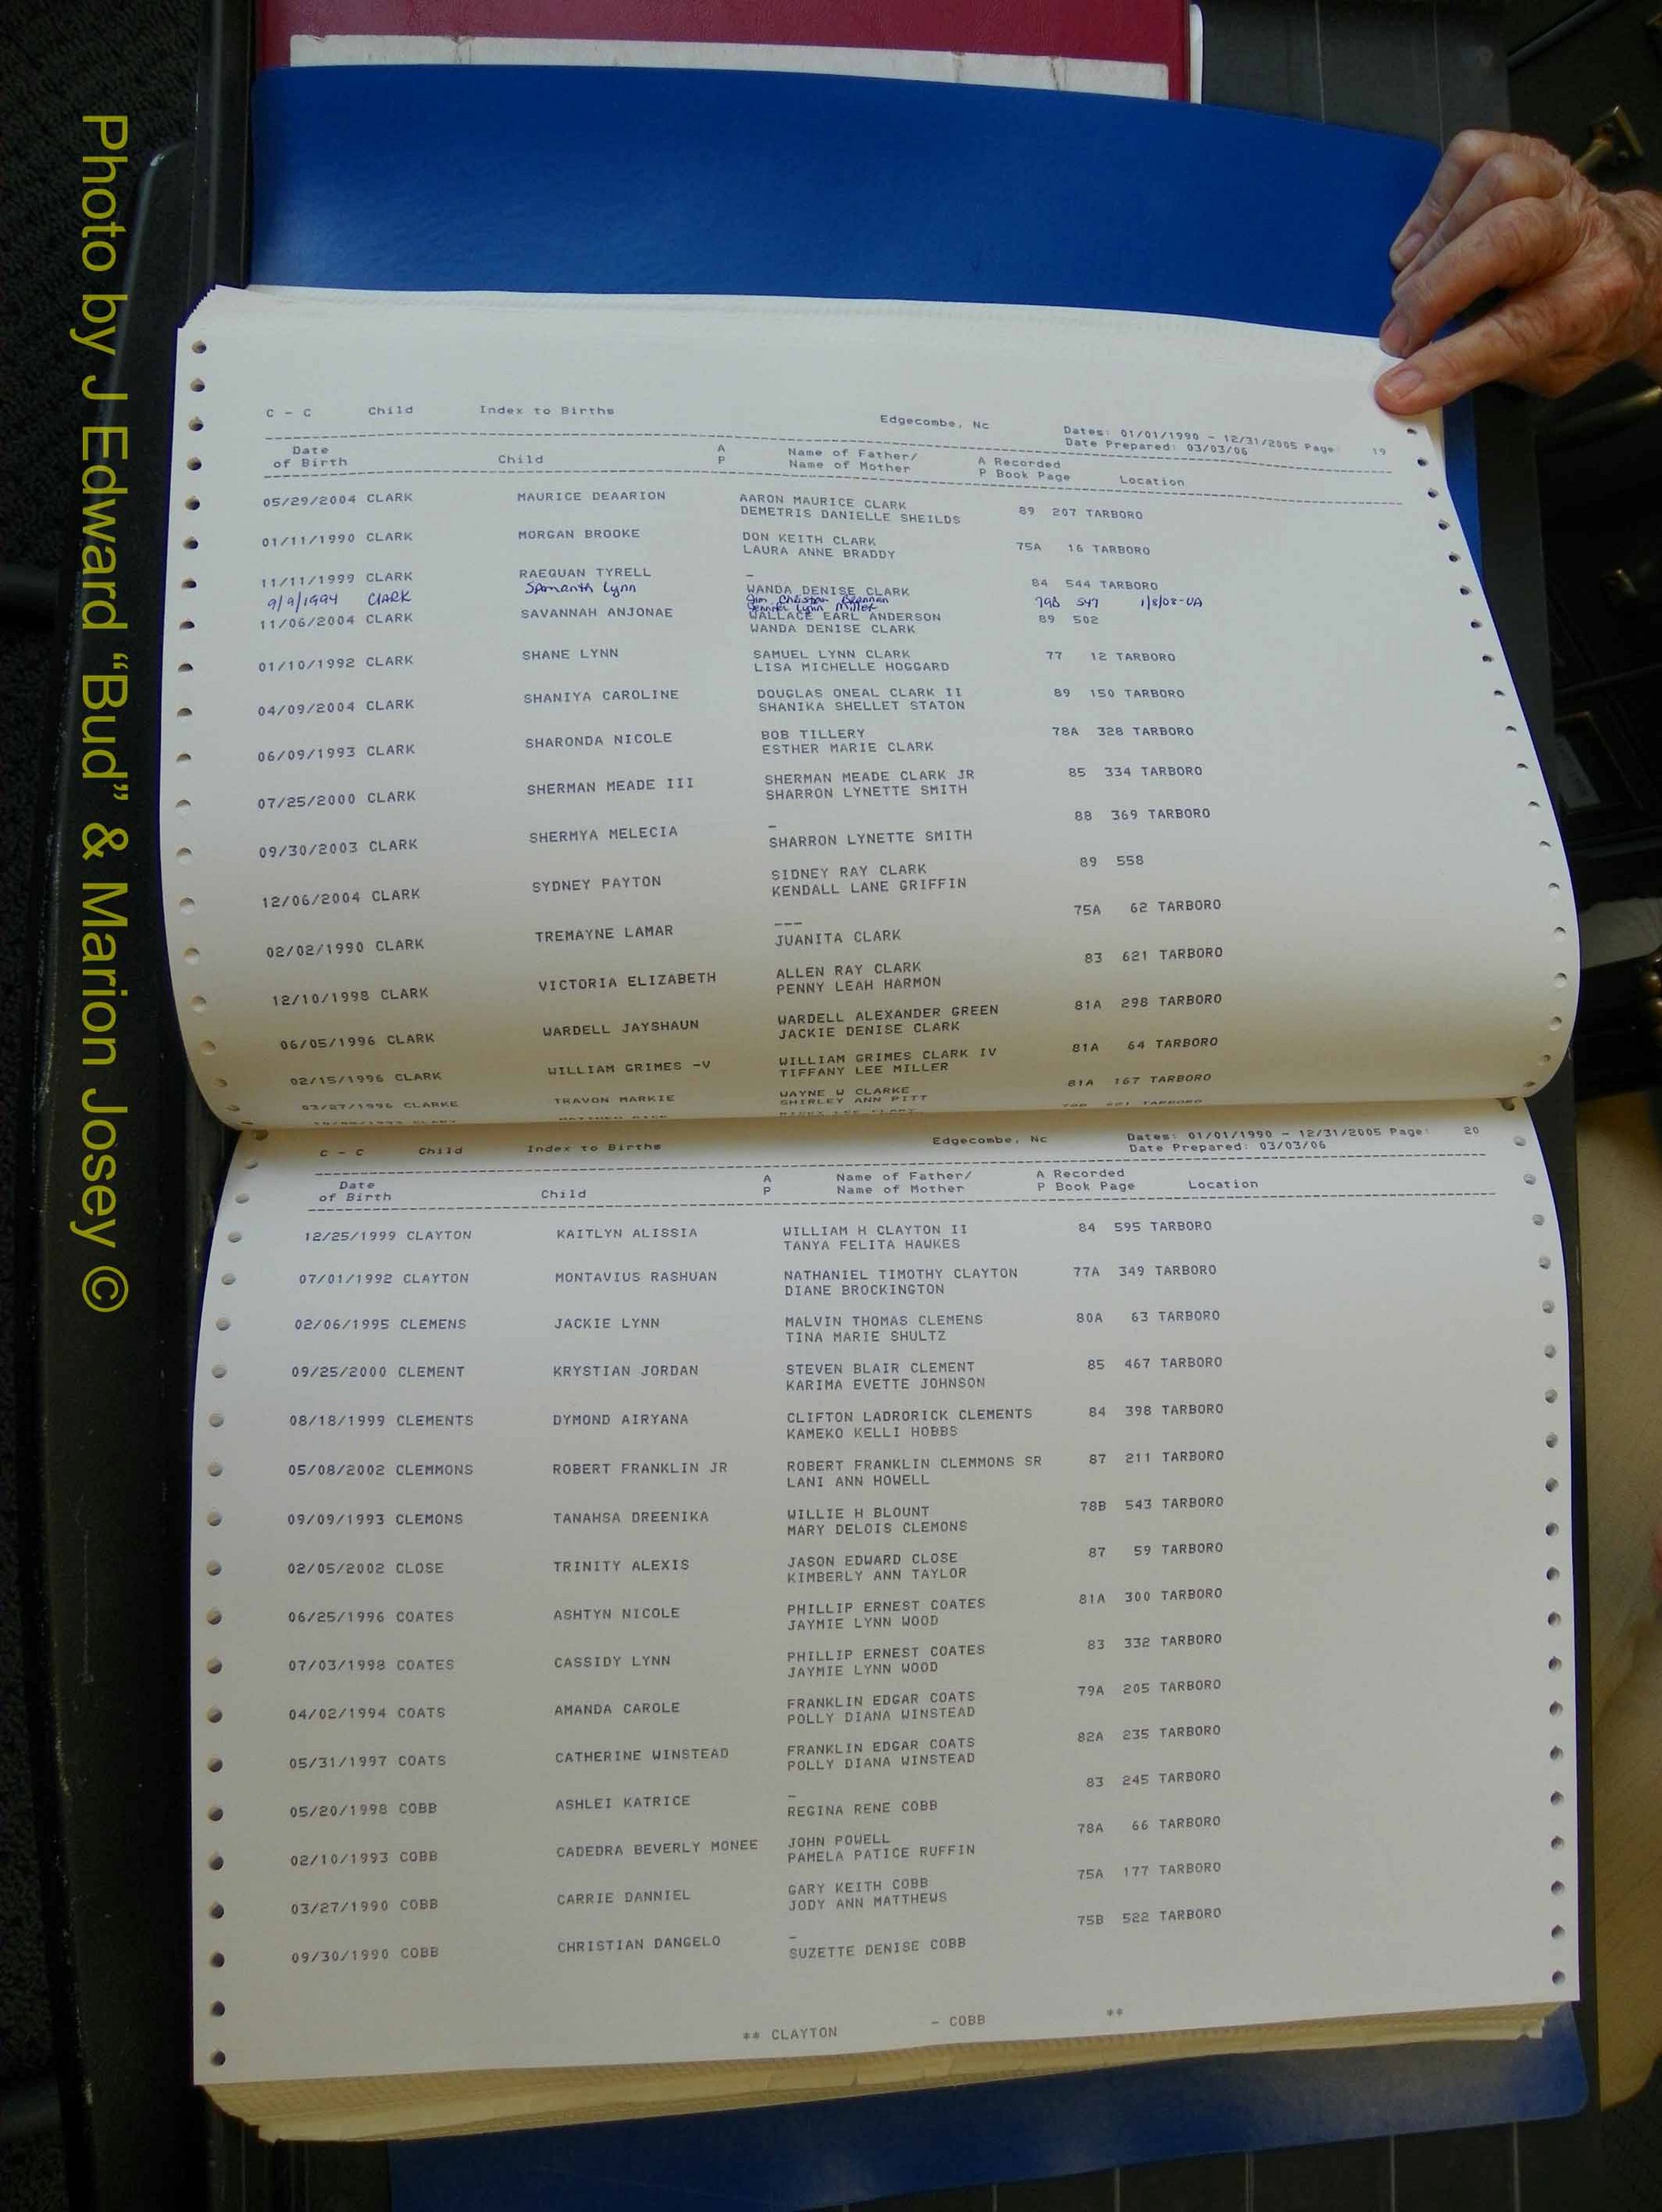 Photo by J Edward “Bud” & Marion Josey ©
C - C Child Index to Births Edgecombe, Nc Dates: 01/01/1990 - 12/31/2005 Page: 19
Date Prepared: 03/03/06
Date A Name of Father/ A Recorded
of Birth Child P Name of Mother P Book Page Location
05/29/2004 CLARK MAURICE DEAARION AARON MAURICE CLARK 89 207 TARBORO
DEMETRIS DANIELLE SHEILDS
01/11/1990 CLARK MORGAN BROOKE DON KEITH CLARK 75A 16 TARBORO
LAURA ANNE BRADDY
11/11/1999 CLARK RAEQUAN TYRELL - 84 544 TARBORO
WANDA DENISE CLARK
9/9/1994 CLARK Samanth Lynn Jim Christian Brannan 79B 547 1/8/08-UA
Jennifer Lynn Miller
11/06/2004 CLARK SAVANNAH ANJONAE WALLACE EARL ANDERSON 89 502
WANDA DENISE CLARK
01/10/1992 CLARK SHANE LYNN SAMUEL LYNN CLARK 77 12 TARBORO
LISA MICHELLE HOGGARD
04/09/2004 CLARK SHANIYA CAROLINE DOUGLAS ONEAL CLARK II 89 150 TARBORO
SHANIKA SHELLET STATON
06/09/1993 CLARK SHARONDA NICOLE BOB TILLERY 78A 328 TARBORO
ESTHER MARIE CLARK
07/25/2000 CLARK SHERMAN MEADE III SHERMAN MEADE CLARK JR 85 334 TARBORO
SHARRON LYNETTE SMITH
09/30/2003 CLARK SHERMYA MELECIA - 88 369 TARBORO
SHARRON LYNETTE SMITH
12/06/2004 CLARK SYDNEY PAYTON SIDNEY RAY CLARK 89 558
KENDALL LANE GRIFFIN
02/02/1990 CLARK TREMAYNE LAMAR --- 75A 62 TARBORO
JUANITA CLARK
12/10/1998 CLARK VICTORIA ELIZABETH ALLEN RAY CLARK 83 621 TARBORO
PENNY LEAH HARMON
06/05/1996 CLARK WARDELL JAYSHAUN WARDELL ALEXANDER GREEN 81A 298 TARBORO
JACKIE DENISE CLARK
02/15/1996 CLARK WILLIAM GRIMES -V WILLIAM GRIMES CLARK IV 81A 64 TARBORO
TIFFANY LEE MILLER
03/27/1996 CLARKE TRAVON MARKIE WAYNE W CLARKE 81A 167 TARBORO
SHIRLEY ANN PITT
C - C Child Index to Births Edgecombe, Nc Dates: 01/01/1990 - 12/31/2005 Page: 20
Date Prepared: 03/03/06
Date A Name of Father/ A Recorded
of Birth Child P Name of Mother P Book Page Location
12/25/1999 CLAYTON KAITLYN ALISSIA WILLIAM H CLAYTON II 84 595 TARBORO
TANYA FELITA HAWKES
07/01/1992 CLAYTON MONTAVIUS RASHUAN NATHANIEL TIMOTHY CLAYTON 77A 349 TARBORO
DIANE BROCKINGTON
02/06/1995 CLEMENS JACKIE LYNN MALVIN THOMAS CLEMENS 80A 63 TARBORO
TINA MARIE SHULTZ
09/25/2000 CLEMENT KRYSTIAN JORDAN STEVEN BLAIR CLEMENT 85 467 TARBORO
KARIMA EVETTE JOHNSON
08/18/1999 CLEMENTS DYMOND AIRYANA CLIFTON LADRORICK CLEMENTS 84 398 TARBORO
KAMEKO KELLI HOBBS
05/08/2002 CLEMMONS ROBERT FRANKLIN JR ROBERT FRANKLIN CLEMMONS SR 87 211 TARBORO
LANI ANN HOWELL
09/09/1993 CLEMONS TANAHSA DREENIKA WILLIE H BLOUNT 78B 543 TARBORO
MARY DELOIS CLEMONS
02/05/2002 CLOSE TRINITY ALEXIS JASON EDWARD CLOSE 87 59 TARBORO
KIMBERLY ANN TAYLOR
06/25/1996 COATES ASHTYN NICOLE PHILLIP ERNEST COATES 81A 300 TARBORO
JAYMIE LYNN WOOD
07/03/1998 COATES CASSIDY LYNN PHILLIP ERNEST COATES 83 332 TARBORO
JAYMIE LYNN WOOD
04/02/1994 COATS AMANDA CAROLE FRANKLIN EDGAR COATS 79A 205 TARBORO
POLLY DIANA WINSTEAD
05/31/1997 COATS CATHERINE WINSTEAD FRANKLIN EDGAR COATS 82A 235 TARBORO
POLLY DIANA WINSTEAD
05/20/1998 COBB ASHLEI KATRICE - 83 245 TARBORO
REGINA RENE COBB
02/10/1993 COBB CADEDRA BEVERLY MONEE JOHN POWELL 78A 66 TARBORO
PAMELA PATICE RUFFIN
03/27/1990 COBB CARRIE DANNIEL GARY KEITH COBB 75A 177 TARBORO
JODY ANN MATTHEWS
09/30/1990 COBB CHRISTIAN DANGELO - 75B 522 TARBORO
SUZETTE DENISE COBB
** CLAYTON - COBB **